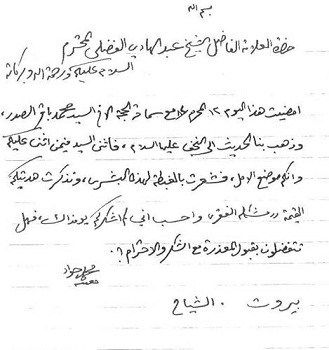 بسم الله
حضرة العلامة الفاضل الشيخ عبد الهادي الفضلي المحترم
السلام عليكم ورحمة الله وبركاته
امضيت هذا اليوم ١٢ المحرم مع سماحة الحجة الاخ السيد محمد باقر الصدر،
وذهب بنا الحديث الى النجف عليها السلام، فاثنى السيد فيمن اثنى عليكم
وانكم موضع الامل، فشعرت بالغبطة لهذه البشرى، وتذكرت هديتكم
القيمة وواحسب اني لم اشكركم يومذاك، فهل
تتفضلون بقبول المعذرة مع الشكر والاحترام؟.
محمد جواد مغنية
بيروت . الشياح